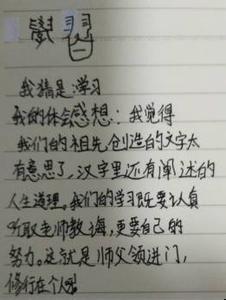 學習
我猜是学习
我的体会感想：我觉得
我们的祖先创造的文字太
有意思了，汉字里还有阐述的
人生道理。我们的学习既要认真
听取老师教诲，更要自己的
努力。这就是师父领进门，
修行在个人吧